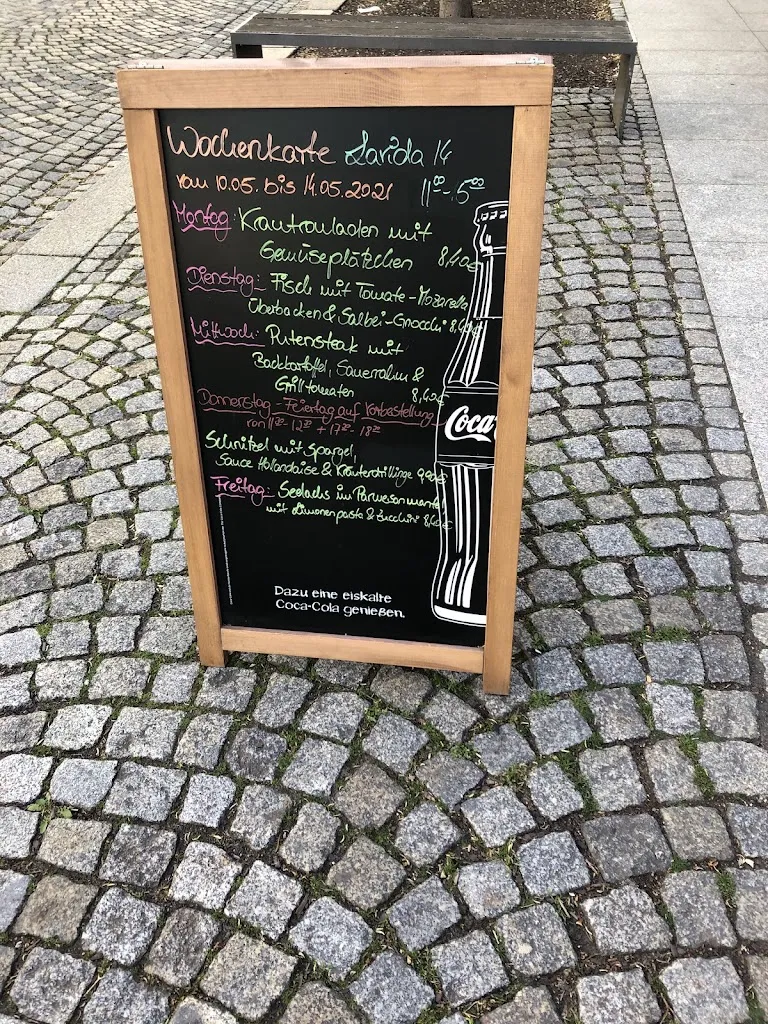 Wochenkarte Larida 14
vom 10.05. bis 14.05.2021 11⁰⁰-15⁰⁰
Montag: Krautrouladen mit
Gemüseplätzchen 8,40€
Dienstag: Fisch mit Tomate-Mozarella
überbacken & Salbei-Gnocchi 8,40€
Mittwoch: Putensteak mit
Backkartoffel, Sauerrahm &
Grilltomaten 8,40€
Donnerstag - Feiertag auf Vorbestellung
von 11³⁰-12³⁰ + 17³⁰-18³⁰
Schnitzel mit Spargel,
Sauce Hollandaise & Kräuterdrillinge 9,90€
Freitag: Seelachs im Parmesanmantel
mit Limonenpasta & Zucchini 8,40€
Coca
Dazu eine eiskalte
Coca-Cola genießen.